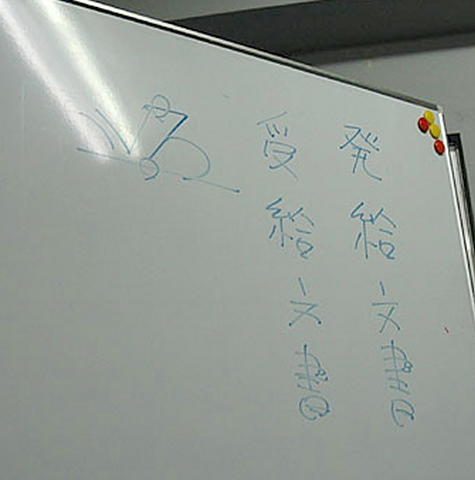 発給文書
受給文書